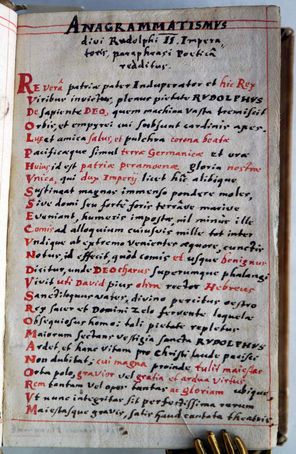 ANAGRAMMATISMVS
divi Rudolphi II. Impera
toris, paraphrasi Poeticâ
redditus.
Re verâ patriæ pater Induperator et hic Rex
Viribus invictus, plenus pietate RVDOLPHVS
De sapiente DEO, quem machina vasta tremiscit
Orbis, et empyrei cui sunt cardinis apex.
Lux et amica salus, et pulchra corona beatæ
Pacificæque simul terræ Germanicæ et oræ
Huius, id est patriæ gloria nostræ
Vnica, qui dux Imperij licet hîc alibique
Sustineat magnus immenso pondere moles,
Sive domi seu fortè foris terrâve marive
Eveniant, humeris impostæ, nil minus ille
Comis ad alloquium cuiusvis mille tot inter
Vndique ab extremo venientes æquore, cunctis
Notus, id effecit, quòd comis et usque benignus
Dicitur, unde DEO charus superumque phalangi
Vivit uti David pius rector Hebræus
Sanctiloquus vates, divino percitus oestro
Rex sacer et Domini Zelo fervente loquela
Obsequiosus homo: tali pietate repletus
Maiorum sectans vestigia sancta RVDOLPHVS
Ardet, et hanc vitam pro Christi laude pacisci
Non dubitat, cui magna proinde tulit maiestas
Orta polo, gravior vel gratia et ardua virtus
Rem tantam vel oper tantas ac gloriam ubique,
Vt nunc integritas sit perfectissima rerum
Maiestasque gravis, satis haud cantata theatris.